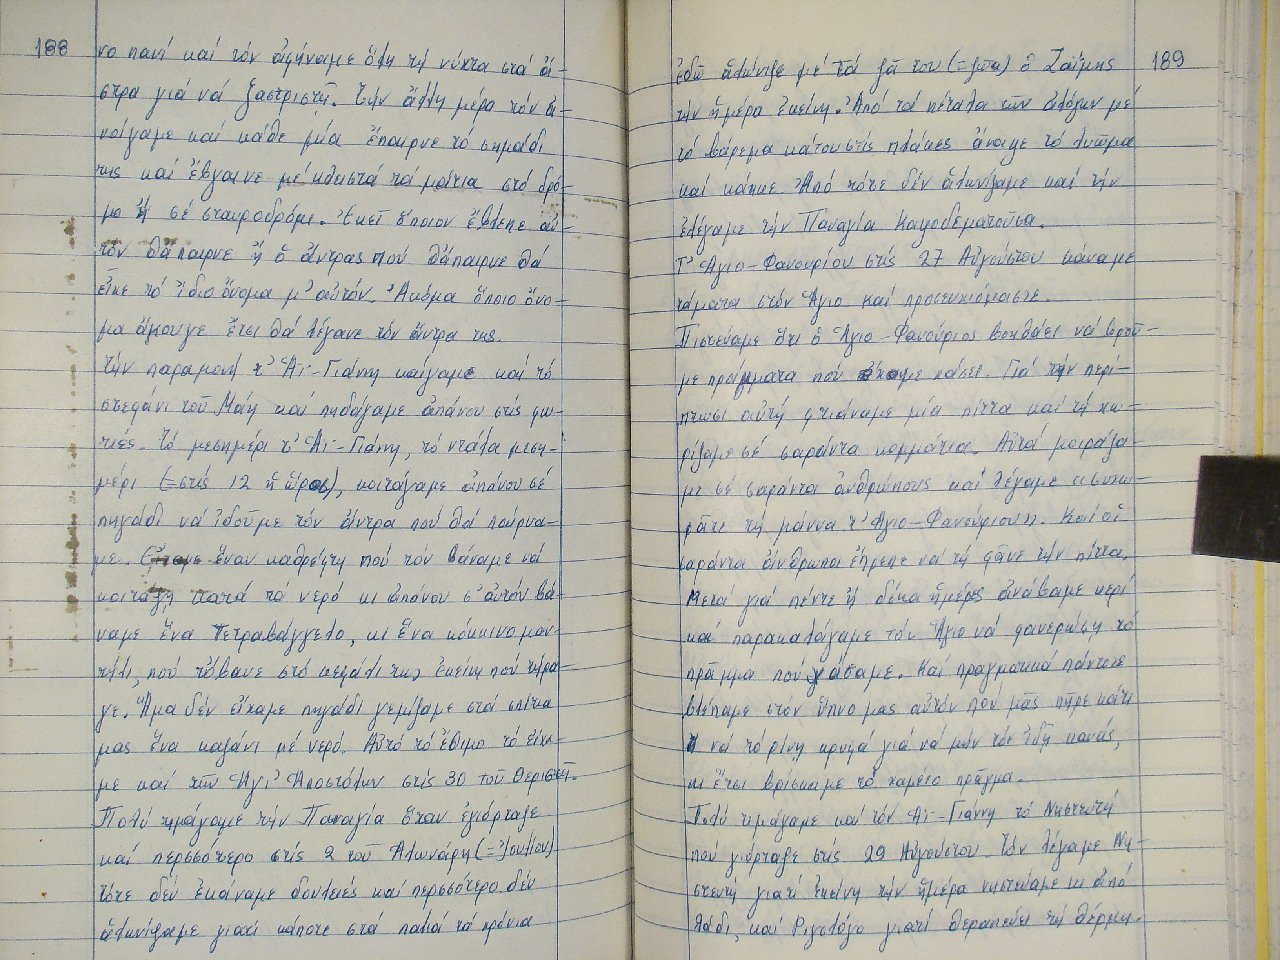 188
νο πανί καί τόν ἀφήναμε ὅλη τή νύχτα στά ἄ-
στρα γιά νά ξαστριστῇ. Τήν ἄλλη μέρα τόν ἀ-
νοίγαμε καί κάθε μία ἔπαιρνε τό σημάδι
της καί ἔβγαινε μέ κλειστά τά μάτια στό δρό-
μο ἤ σέ σταυροδρόμι. Ἐκεῖ ὅποιον ἔβλεπε αὐ-
τόν θἄπαιρνε ἤ ὁ ἄντρας πού θἄπαιρνε θά
εἶχε τό ἴδιο ὄνομα μ' αὐτόν. Ἀκόμα ὅποιο ὄνο-
μα ἄκουγε ἔτσι θά λέγανε τόν ἄντρα της.
Τήν παραμονή τ' Ἁϊ-Γιάννη καίγαμε καί τό
στεφάνι τοῦ Μάη καί πηδάγαμε ἀπάνου στίς φω-
τιές. Τό μεσημέρι τ' Ἁϊ-Γιάννη, τό ντάλα μεση-
μέρι (=στίς 12 ἡ ὥρα), κοιτάγαμε ἀπάνου σέ
πηγάδι νά ἰδοῦμε τόν ἄντρα πού θά παίρνα-
με. Εἴχαμε ἕναν καθρέφτη πού τόν βάναμε νά
κοιτάῃ κατά τό νερό κι ἀπάνου σ' αὐτόν βά-
ναμε ἕνα τετραβάγγελο, κι ἕνα κόκκινο μαν-
τήλι, πού τὄβανε στό κεφάλι της ἐκείνη πού τήρα-
γε. Ἅμα δέν εἴχαμε πηγάδι γεμίζαμε στά σπίτια
μας ἕνα καζάνι μέ νερό. Αὐτό τό ἔθιμο τό εἴχα-
με καί τῶν Ἁγι' Ἀποστόλων στίς 30 τοῦ Θεριστῆ.
Πολύ τιμάγαμε τήν Παναγία ὅταν ἐγιόρταζε
καί περσσότερο στίς 2 τοῦ Ἁλωνάρη (=Ἰουλίου)
τότε δέν ἐκάναμε δουλειές καί περσσότερο δέν
ἁλωνίζαμε γιατί κάποτε στά παλιά τά χρόνια
189
ἐδῶ ἁλώνιζε μέ τά ζᾶ του (=ζῶα) ὁ Ζαΐμης
τήν ἡμέρα ἐκείνη. Ἀπό τά πέταλα τῶν ἀλόγων μέ
τό βάρεμα κάτου στίς πλάκες ἄναψε τό λιῶμα
καί κάηκε. Ἀπό τότε δέν ἁλωνίζαμε καί τήν
ἐλέγαμε τήν Παναγία Καψοδεματοῦσα.
Τ' Ἁγιο-Φανουρίου στίς 27 Αὐγούστου κάναμε
τάματα στόν Ἅγιο καί προσευχιόμαστε.
Πιστεύαμε ὅτι ὁ Ἁγιο-Φανούριος βοηθάει νά βροῦ-
με πράγματα πού ἔχομε χάσει. Γιά τήν περί-
πτωσι αὐτή φτιάναμε μία πίττα καί τή χω-
ρίζαμε σέ σαράντα κομμάτια. Αὐτά μοιράζα-
με σέ σαράντα ἀνθρώπους καί λέγαμε "συχω-
ρᾶτε τή μάννα τ' Ἁγιο-Φανούριου". Καί οἱ
σαράντα ἄνθρωποι ἔπρεπε νά τή φᾶνε τήν πίττα.
Μετά γιά πέντε ἤ δέκα ἡμέρες ἀνάβαμε κερί
καί παρακαλάγαμε τόν Ἅγιο νά φανερώσῃ τό
πρᾶμμα πού χάσαμε. Καί πραγματικά πάντοτε
βλέπαμε στόν ὕπνο μας αὐτόν πού μᾶς πῆρε κάτι
νά τό ρίνῃ κρυφά γιά νά μήν τόν ἰδῇ κανείς,
κι ἔτσι βρίσκαμε τό χαμένο πρᾶγμα.
Πολύ τιμάγαμε καί τόν Ἁϊ-Γιάννη τό Νηστευτή
πού γιόρταζε στίς 29 Αὐγούστου. Τόν λέγαμε Νη-
στευτή γιατί ἐκείνη τήν ἡμέρα νηστεύαμε κι ἀπό
λάδι, καί Ριγολόγο γιατί θεραπεύει τή θέρμη.